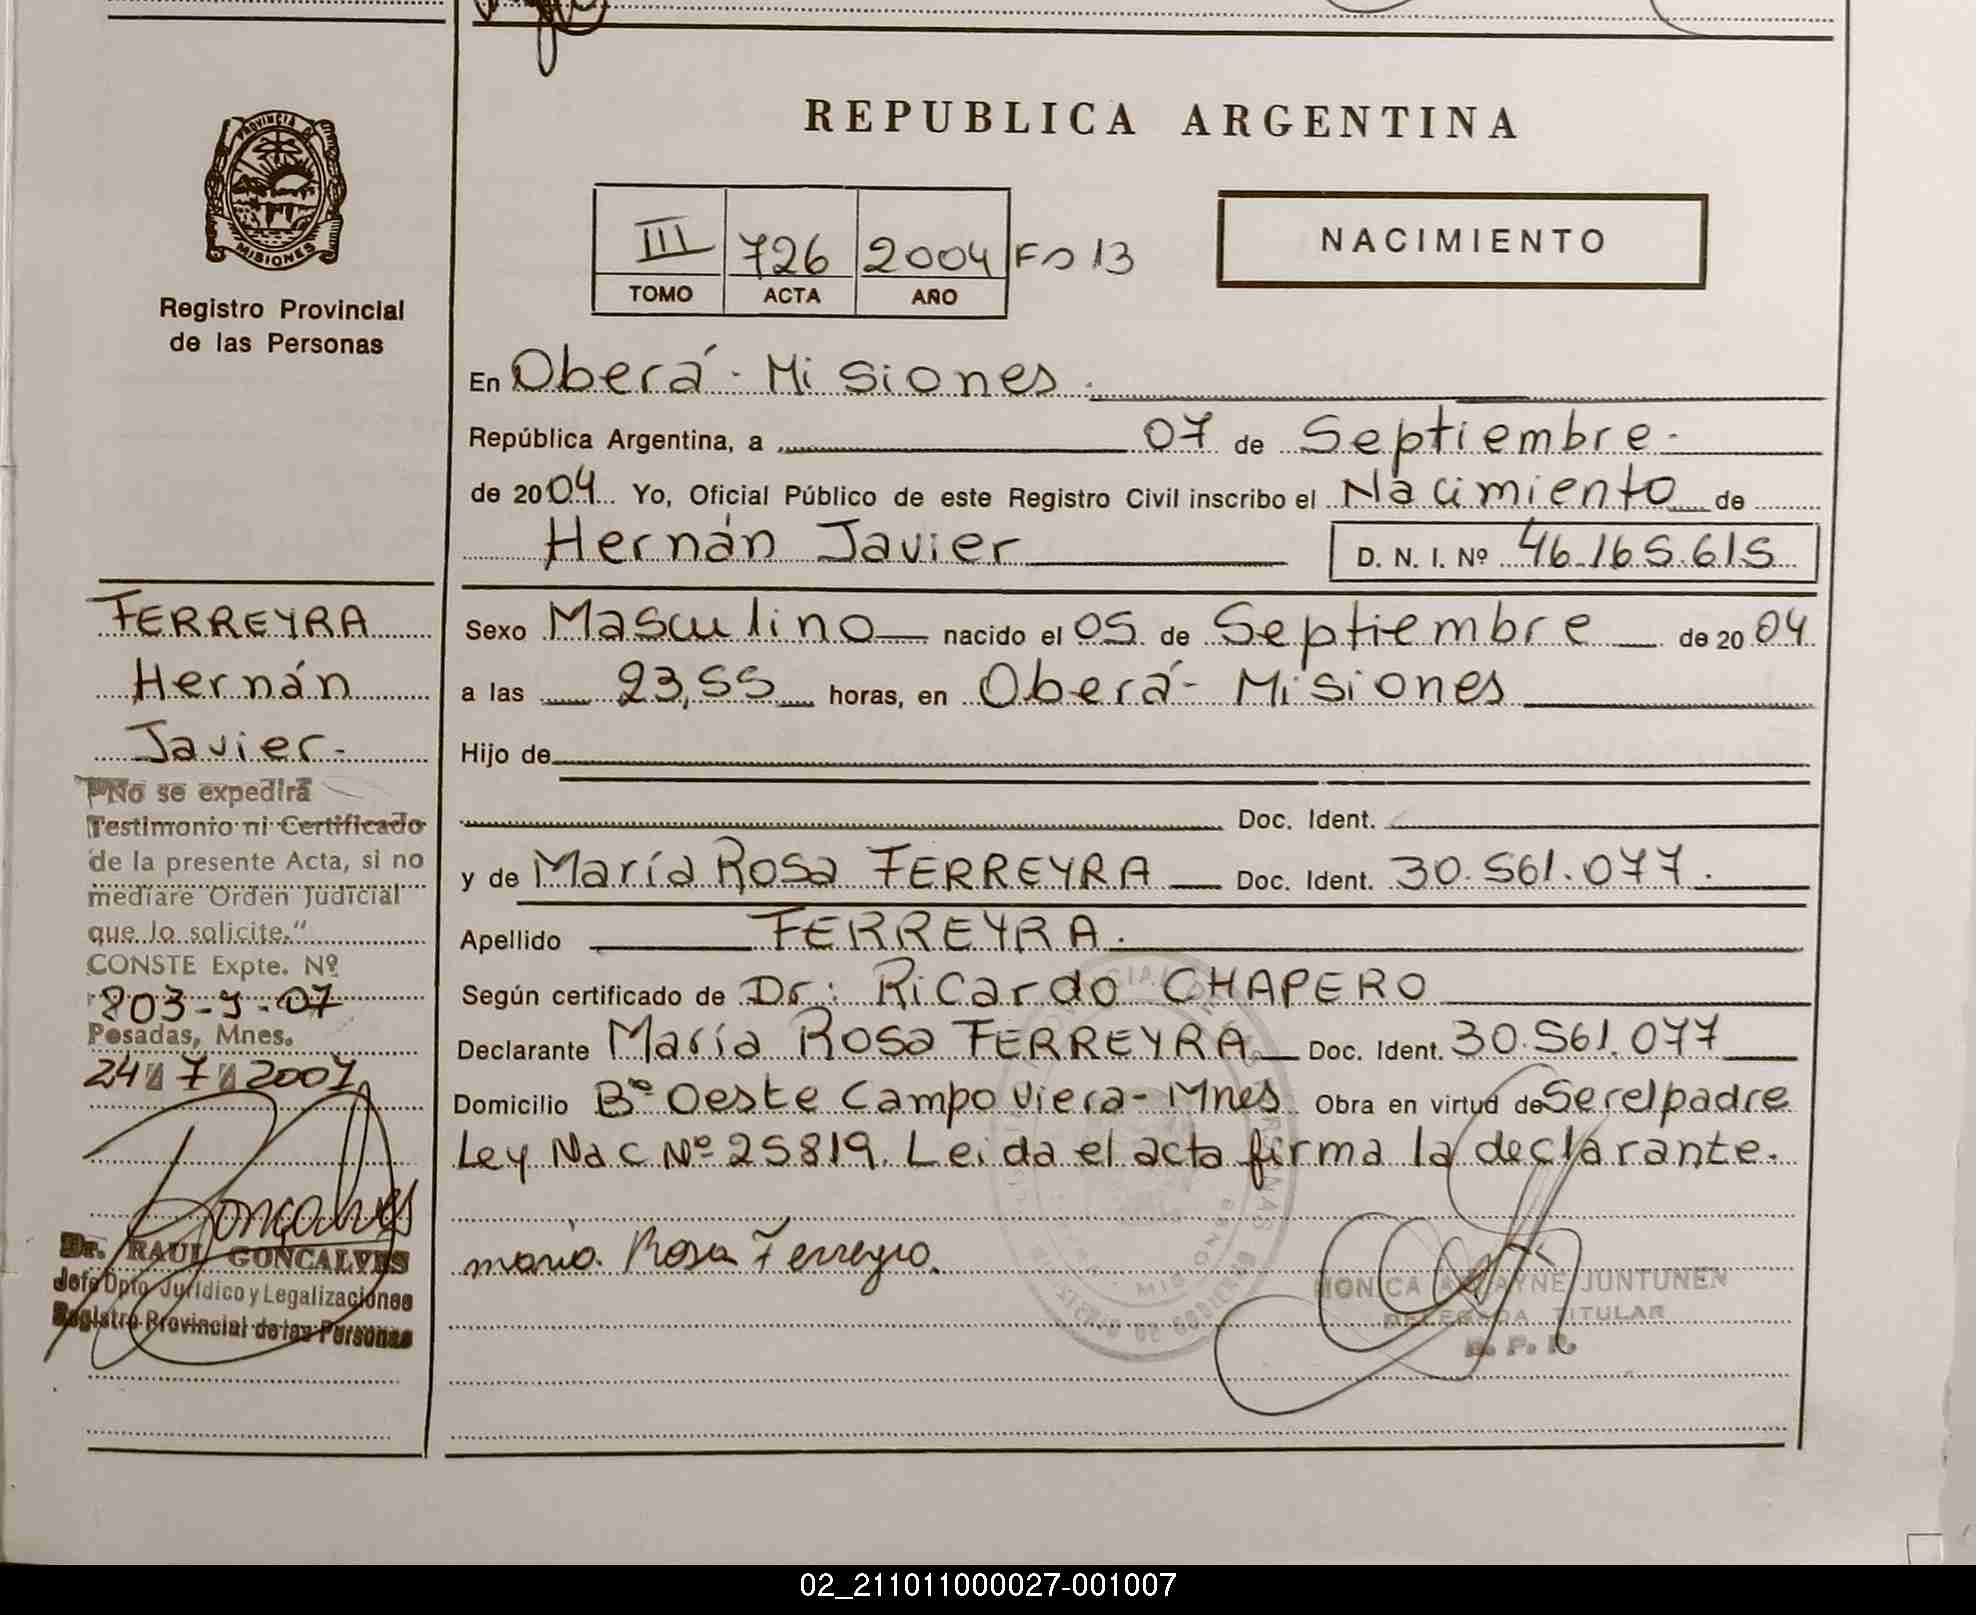 REPUBLICA ARGENTINA
PROVINCIA DE
MISIONES
Registro Provincial
de las Personas
III 726 2004 Fo 13
TOMO ACTA AÑO
NACIMIENTO
En Oberá - Misiones.
República Argentina, a 07 de Septiembre.
de 2004 Yo, Oficial Público de este Registro Civil inscribo el Nacimiento de
Hernán Javier D. N. I. Nº 46.165.615
Sexo Masculino nacido el 05 de Septiembre de 2004
a las 23,55 horas, en Oberá - Misiones
Hijo de
Doc. Ident.
y de María Rosa FERREYRA Doc. Ident. 30.561.077.
Apellido FERREYRA.
Según certificado de Dr: Ricardo CHAPERO
Declarante María Rosa FERREYRA Doc. Ident. 30.561.077
Domicilio Bº Oeste Campo Viera - Mnes Obra en virtud de Ser el padre
Ley Nac Nº 25819. Leida el acta firma la declarante.
maria Rosa Ferreyra.
MONICA JUNTUNEN
DELEGADA TITULAR
R. P. P.
FERREYRA
Hernán
Javier-
"No se expedirá
Testimonio ni Certificado
de la presente Acta, si no
mediare Orden Judicial
que lo solicite."
CONSTE Expte. Nº
803-9-07
Posadas, Mnes.
24 7 2007
Gonçalves
Dr. RAUL GONCALVES
Jefe Dpto Jurídico y Legalizaciones
Registro Provincial de las Personas
02_211011000027-001007